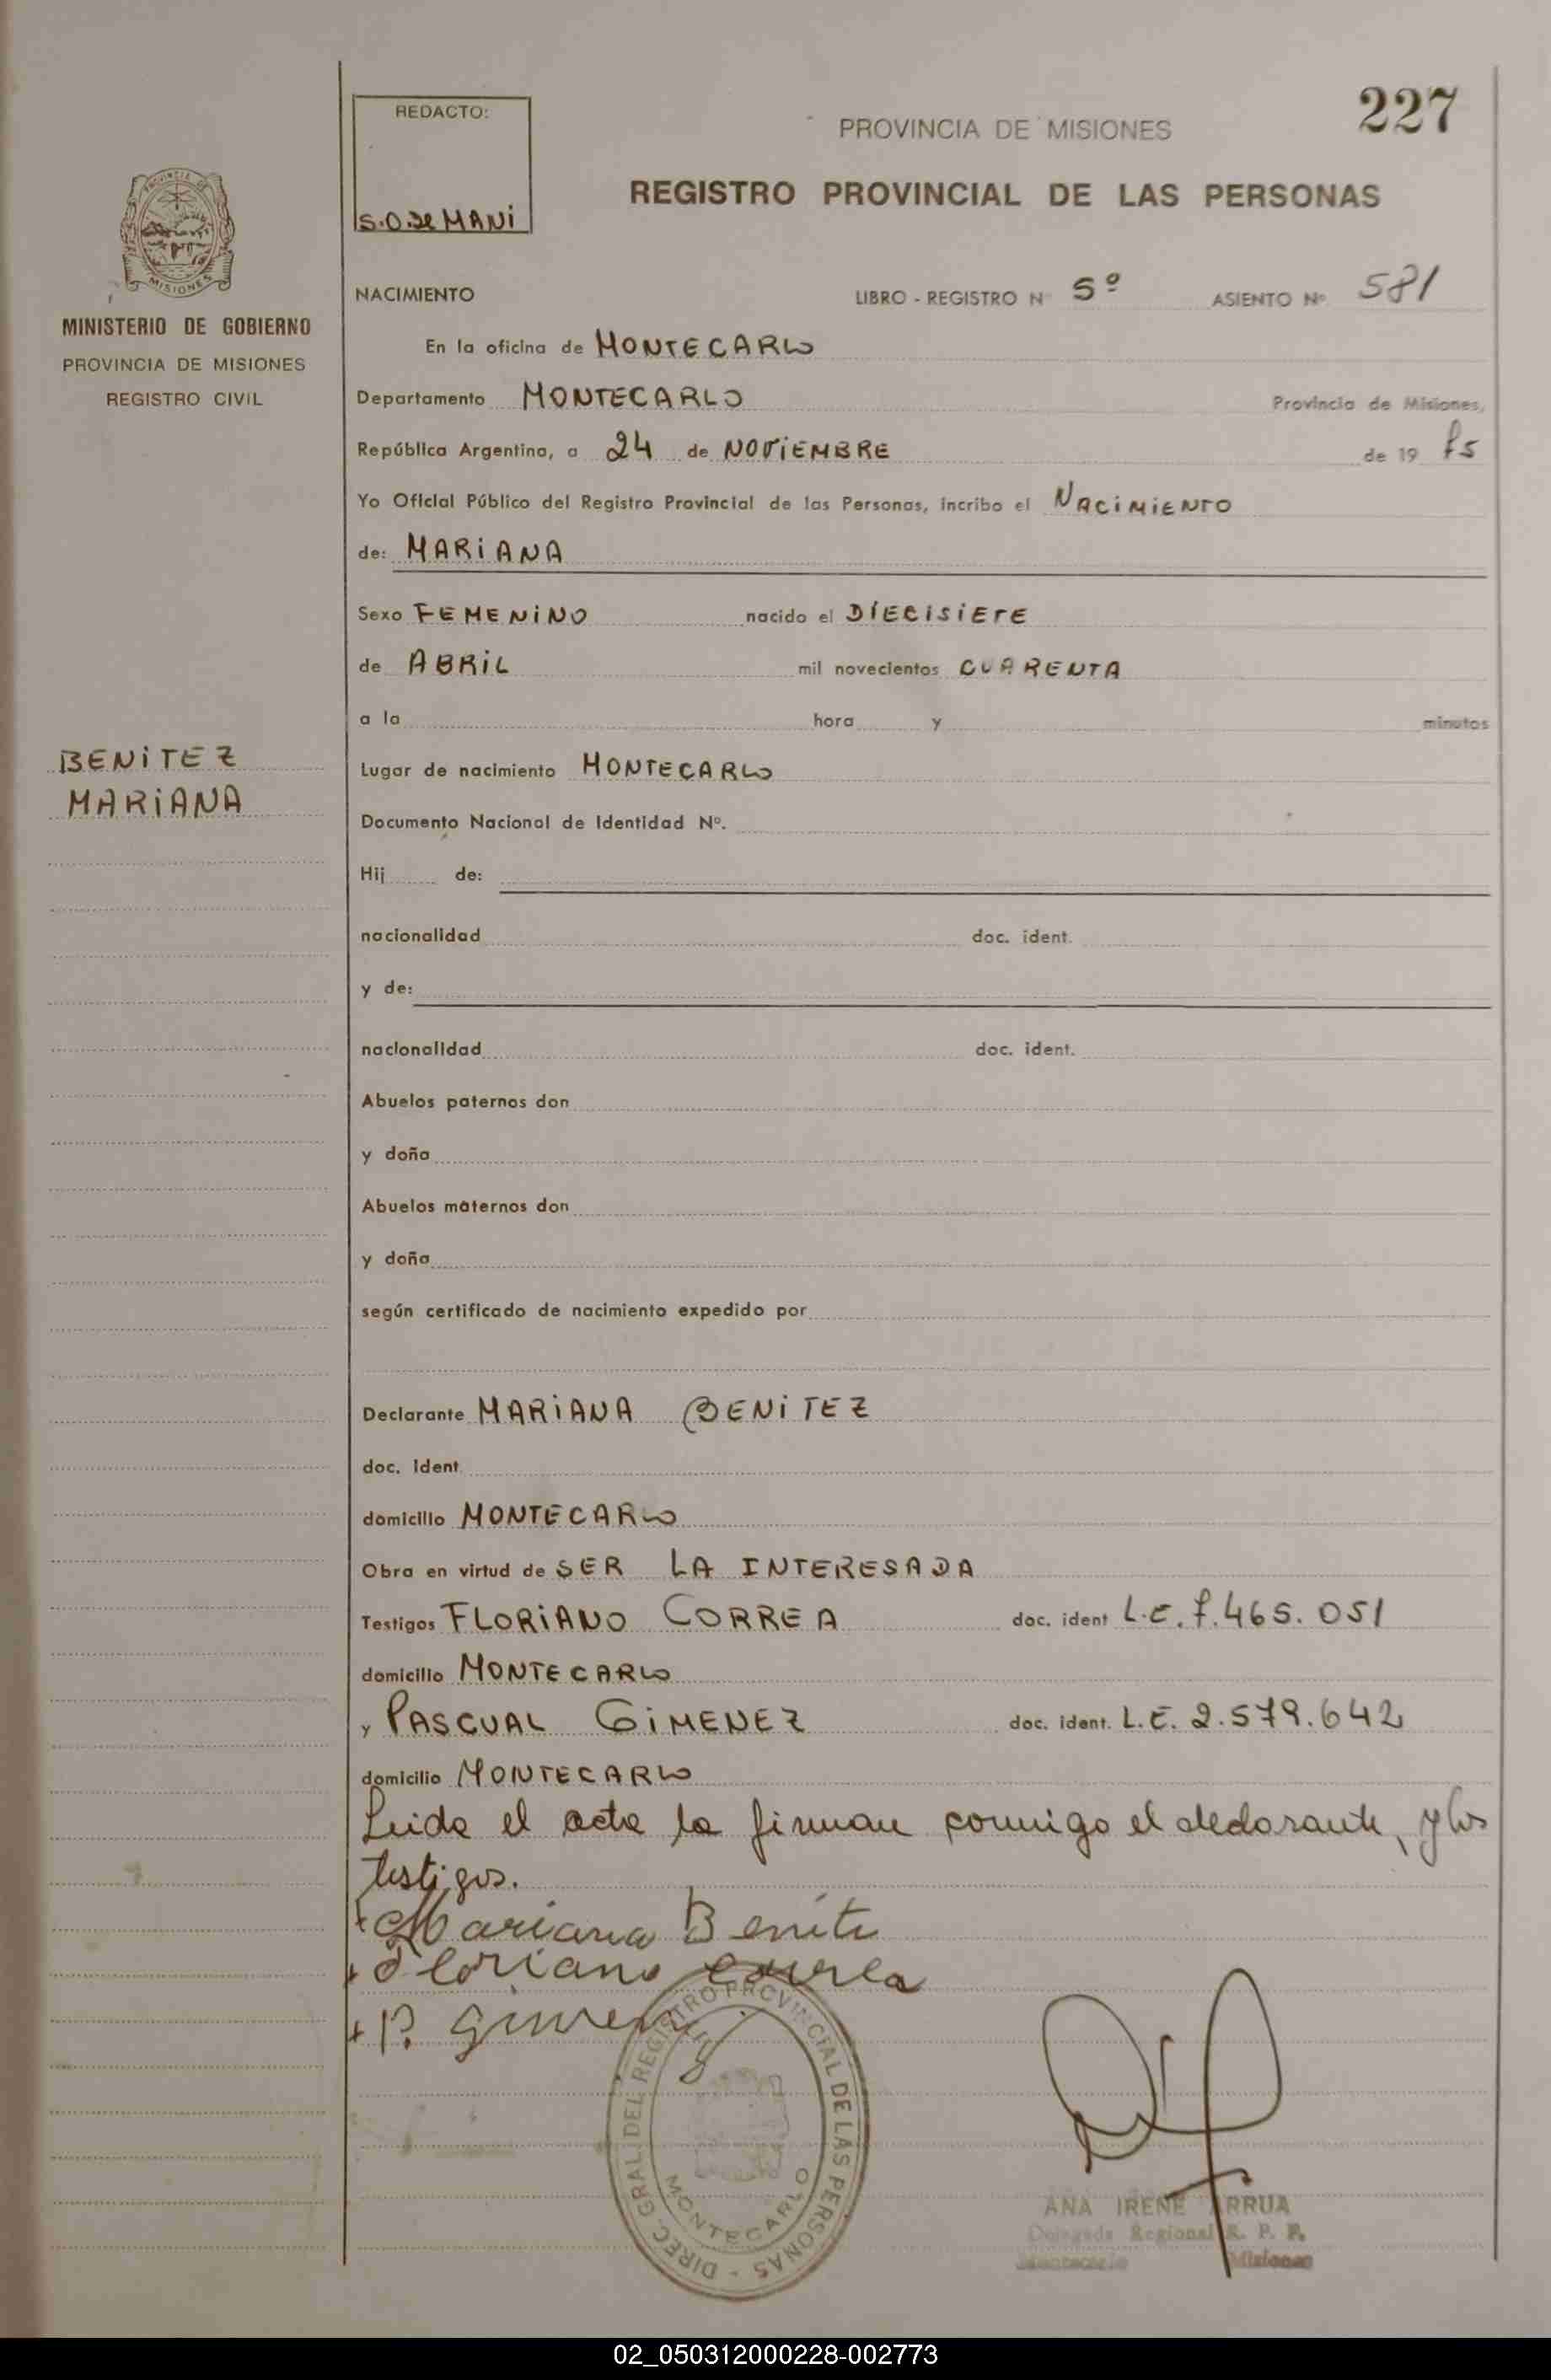 227
REDACTO:
S.O. de MANI
PROVINCIA DE MISIONES
REGISTRO PROVINCIAL DE LAS PERSONAS
PROVINCIA DE
MISIONES
MINISTERIO DE GOBIERNO
PROVINCIA DE MISIONES
REGISTRO CIVIL
NACIMIENTO LIBRO - REGISTRO N° 5º ASIENTO Nº 581
En la oficina de MONTECARLO
Departamento MONTECARLO Provincia de Misiones,
República Argentina, a 24 de NOVIEMBRE de 19 85
Yo Oficial Público del Registro Provincial de las Personas, incribo el NACIMIENTO
de: MARIANA
Sexo FEMENINO nacido el DIECISIETE
de ABRIL mil novecientos CUARENTA
a la hora y minutos
BENITEZ
MARIANA
Lugar de nacimiento MONTECARLO
Documento Nacional de Identidad Nº.
Hij de:
nacionalidad doc. ident.
y de:
nacionalidad doc. ident.
Abuelos paternos don
y doña
Abuelos maternos don
y doña
según certificado de nacimiento expedido por
Declarante MARIANA BENITEZ
doc. ident
domicilio MONTECARLO
Obra en virtud de SER LA INTERESADA
Testigos FLORIANO CORREA doc. ident L.E. 7.465.051
domicilio MONTECARLO
y PASCUAL GIMENEZ doc. ident. L.E. 2.579.642
domicilio MONTECARLO
Leida el acta la firman conmigo el declarante, y los
testigos.
Mariana Benite
Floriano Correa
P. Gimenez
DIREC. GRAL. DEL REGISTRO PROVINCIAL DE LAS PERSONAS -
MONTECARLO
ANA IRENE ARRUA
Delegada Regional R. P. P.
Montecarlo Misiones
02_050312000228-002773